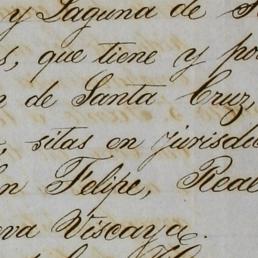 y Laguna de
que tiene y
de Santa Cruz,
sitas en jurisdic
Felipe, Real
eva Viscaya.